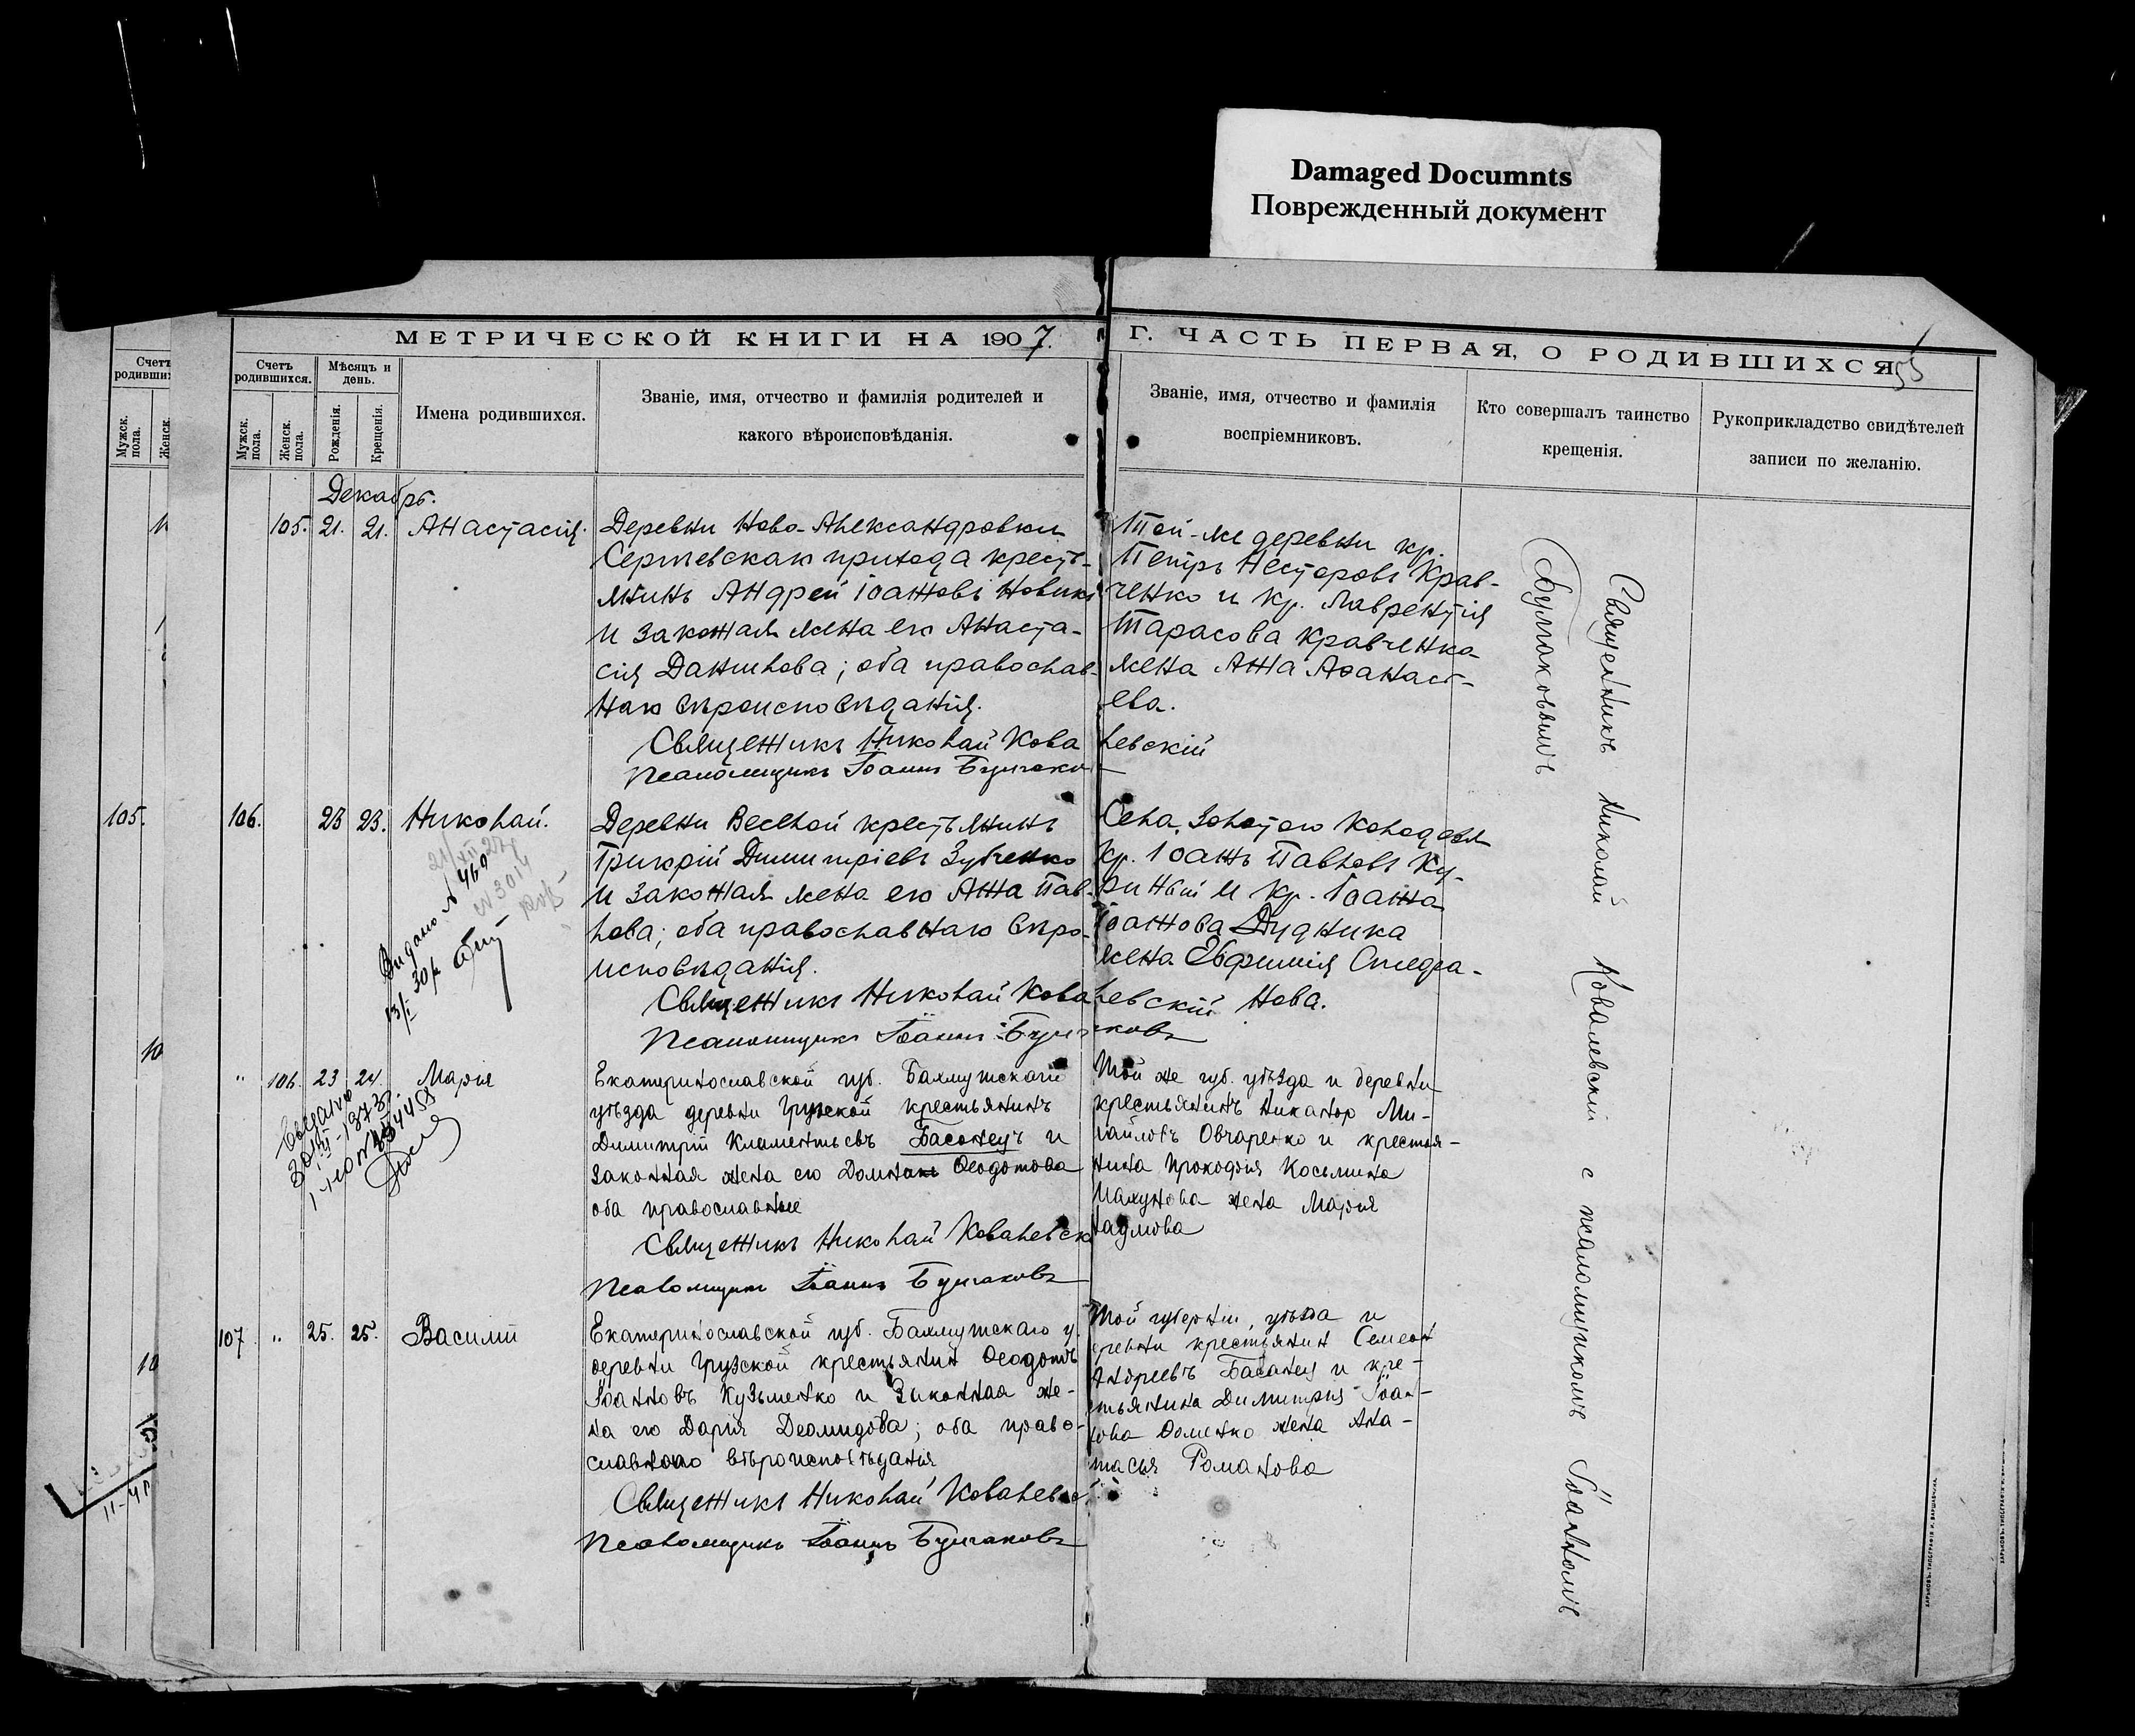 Damaged Documnts
Поврежденный документ
МЕТРИЧЕСКОЙ КНИГИ НА 1907.
Г. ЧАСТЬ ПЕРВАЯ, О РОДИВШИХСЯ
55
Счетъ родившихся.
Мѣсяцъ и день.
Мужск. пола.
Женск. пола.
Рожденія.
Крещенія.
Имена родившихся.
Званіе, имя, отчество и фамилія родителей и
какого вѣроисповѣданія.
Званіе, имя, отчество и фамилія
воспріемниковъ.
Кто совершалъ таинство
крещенія.
Рукоприкладство свидѣтелей
записи по желанію.
Декабрь.
105. 21. 21. Анастасія.
Деревни Ново-Александровки
Сергіевскаго прихода кресть-
янинъ Андрей Іоанновъ Новикъ
и законная жена его Анаста-
сія Даниилова; оба православ-
наго вѣроисповѣданія.
Священникъ Николай Ковалевскій
Псаломщикъ Іоаннъ Булгаковъ
Той-же деревни кр.
Петръ Несторовъ Крав-
ченко и кр. Лаврентія
Тарасова Кравченко
жена Анна Аѳанась-
ева.
Священникъ Николай Ковалевскій с псаломщикомъ Іоанномъ
Булгаковымъ
105.
106. 23 23. Николай.
Деревни Веселой крестьянинъ
Григорій Димитріевъ Зубченко
и законная жена его Анна Пав-
лова; оба православнаго вѣро-
исповѣданія.
Священникъ Николай Ковалевскій
Псаломщикъ Іоаннъ Булгаковъ
Села Золотого Колодезя
кр. Іоаннъ Павловъ Ку-
ринный и кр. Іоанна
Іоаннова Дудника
жена Евфимія Спиридо-
нова.
Видано № 469
" 106. 23 24. Марія
Екатеринославской губ. Бахмутскаго
уѣзда деревни Грузской крестьянинъ
Димитрій Климентьевъ Басанецъ и
законная жена его Домна Ѳеодотова
оба православные
Священникъ Николай Ковалевск
Псаломщикъ Іоаннъ Булгаковъ
Той же губ. уѣзда и деревни
крестьянинъ Никаноръ Ми-
хайловъ Овчаренко и крестья-
нина Прокофія Косьмина
жена Марія
Наумова
107. " 25. 25. Василій
Екатеринославской губ. Бахмутскаго у.
деревни Грузской крестьянин Ѳеодотъ
Іоанновъ Кузьменко и Законная же-
на его Дарія Деомидова; оба право-
славнаго вѣроисповѣданія
Священникъ Николай Ковалевс
Псаломщикъ Іоаннъ Булгаковъ
Той губерніи, уѣзда и
деревни крестьянин Семеон
Андреевъ Басанец и кре-
стьянина Димитрія Іоан-
нова Фоменко жена Ана-
тасья Романова